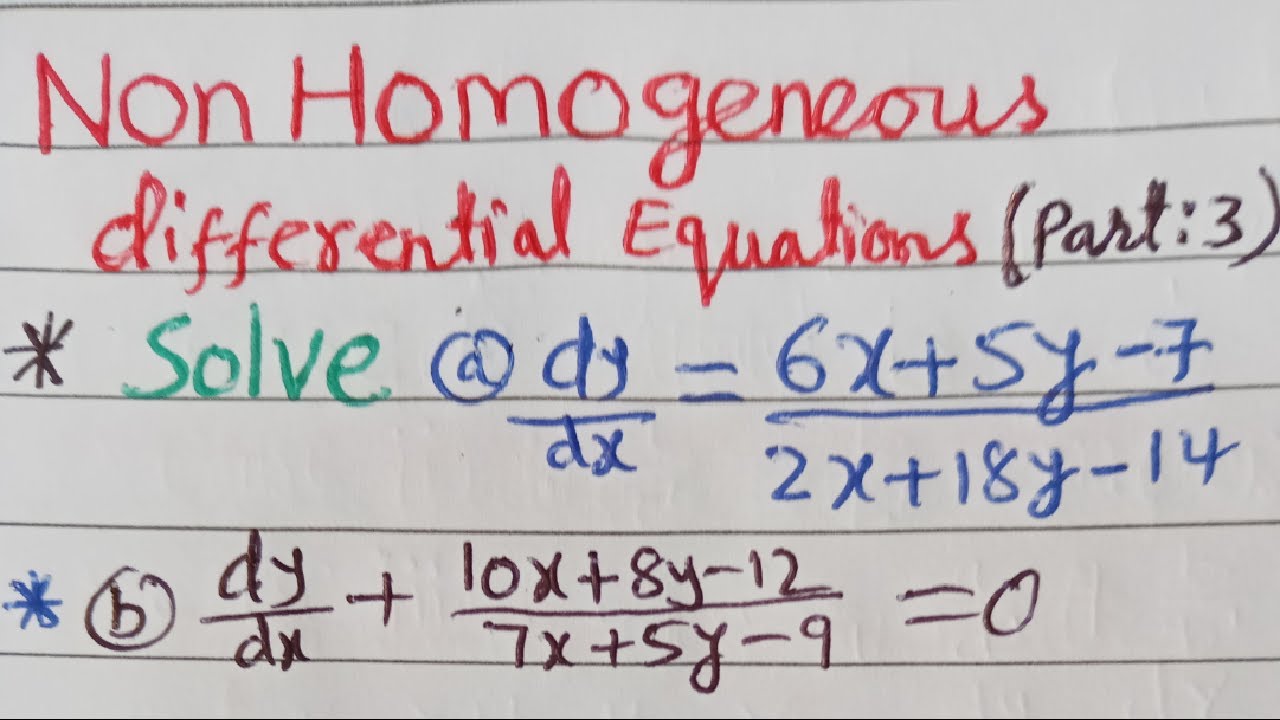 Non Homogeneous
differential Equations (Part:3)
* Solve ⓐ dy/dx = (6x+5y-7)/(2x+18y-14)
* ⓑ dy/dx + (10x+8y-12)/(7x+5y-9) = 0